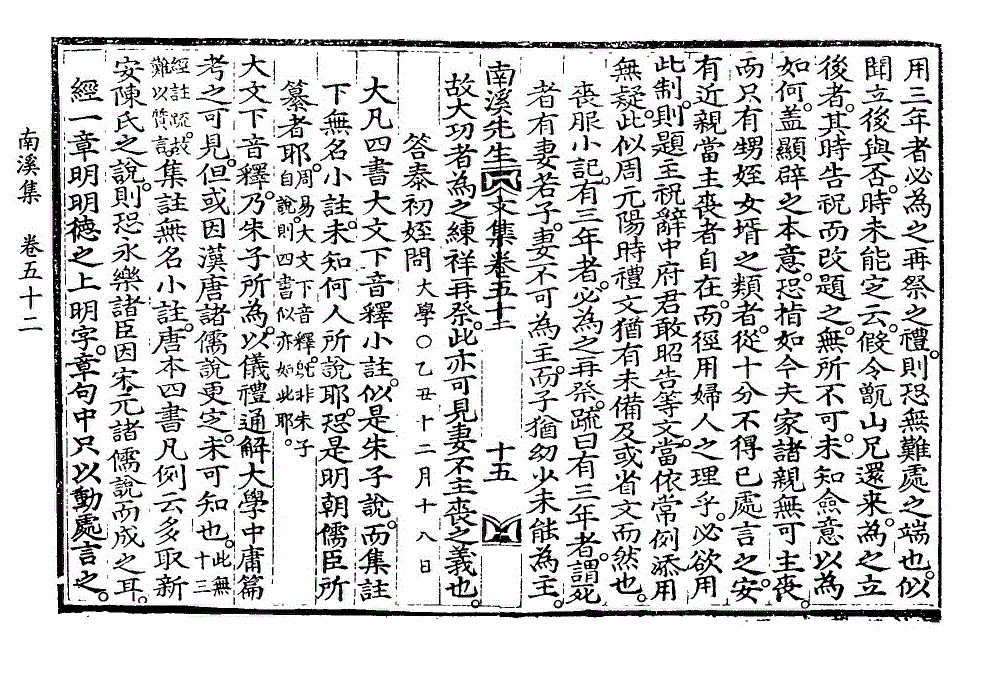 用三年者必爲之再祭之禮則恐無難處之端也似
聞立後與否時未能定云假令甑山兄還来爲之立
後者其時告祝而改題之無所不可未知僉意以爲
如何盖顯辟之本意恐指如今夫家諸親無可主喪
而只有甥姪女壻之類者從十分不得已處言之安
有近親當主喪者自在而徑用婦人之理乎必欲用
此制則題主祝辭中府君敢昭告等文當依常例添用
無疑此似周元陽時禮文猶有未備及或省文而然也
喪服小記有三年者必爲之再祭疏曰有三年者謂死
者有妻若子妻不可爲主而子猶幼少未能爲主
南溪先生文集卷五十二
十五
故大功者爲之練祥再祭此亦可見妻不主喪之義也
答泰初姪問大學○乙丑十二月十八日
大凡四書大文下音釋小註似是朱子說而集註
下無名小註未知何人所說耶恐是明朝儒臣所
纂者耶周易大文下音釋旣非朱子
自說則四書似亦如此耶
大文下音釋乃朱子所爲以儀禮通解大學中庸篇
考之可見但或因漢唐諸儒說更定未可知也此無十三
經註疏故
難以質言集註無名小註唐本四書凡例云多取新
安陳氏之說則恐永樂諸臣因宋元諸儒說而成之耳
經一章明明德之上明字章句中只以動處言之
南溪集
卷五十二